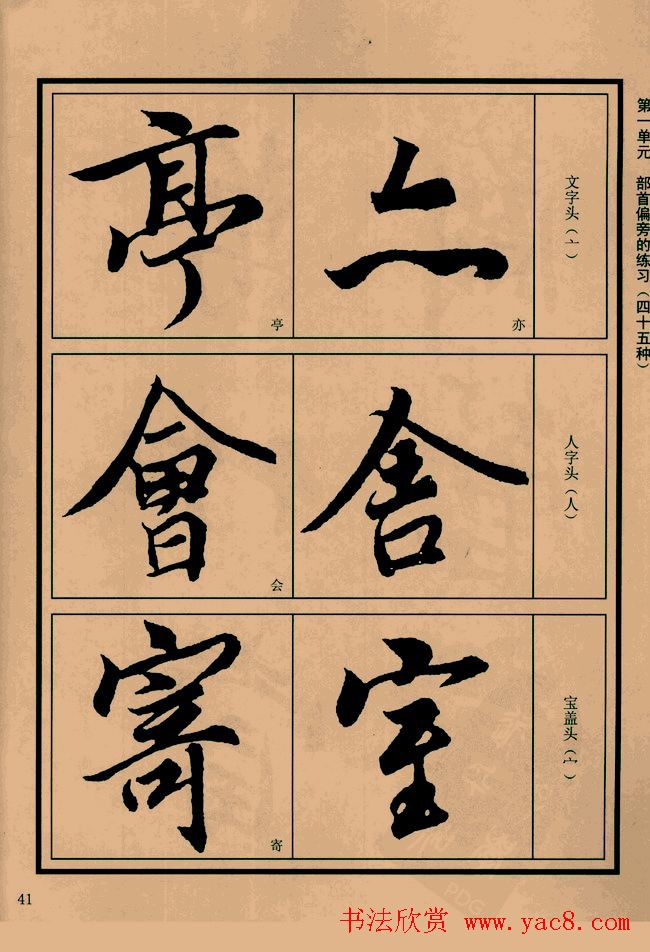 第一单元 部首偏旁的练习(四十五种)
文字头(亠)
亦
亦
亭
亭
人字头(人)
舍
會
会
宝盖头(宀)
室
寄
寄
41
书法欣赏 www.yac8.com